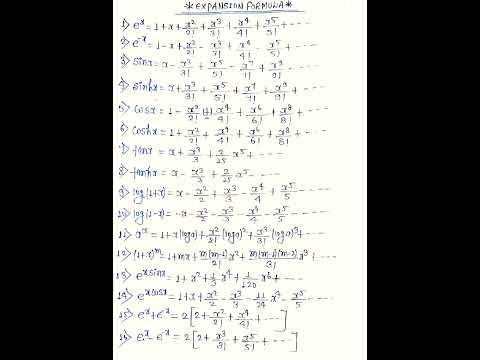 *EXPANSION FORMULA*
1) e^x = 1 + x + x²/2! + x³/3! + x⁴/4! + x⁵/5! + ----
2) e^-x = 1 - x + x²/2! - x³/3! + x⁴/4! - x⁵/5! ----
3) sinx = x - x³/3! + x⁵/5! - x⁷/7! + x⁹/9! ----
4) sinhx = x + x³/3! + x⁵/5! + x⁷/7! + x⁹/9! + ----
5) cosx = 1 - x²/2! + x⁴/4! + x⁶/6! + x⁸/8! ----
6) coshx = 1 + x²/2! + x⁴/4! + x⁶/6! + x⁸/8! ----
7) tanx = x + x³/3 + 2/25 x⁵ + ----
8) tanhx = x - x³/3 + 2/25 x⁵ ----
9) log(1+x) = x - x²/2 + x³/3 - x⁴/4 + x⁵/5 ----
10) log(1-x) = -x - x²/2 - x³/3 - x⁴/4 - x⁵/5 ----
11) a^x = 1 + x(loga) + x²/2! (loga)² + x³/3! (loga)³ + ----
12) (1+x)^m = 1 + mx + m(m-1)/2! x² + m(m-1)(m-2)/3! x³ + ----
13) e^xsinx = 1 + x² + 1/3 x⁴ + 1/120 x⁶ + ----
14) e^xcosx = 1 + x + x²/2 - x³/3 - 11/24 x⁴ - x⁵/5 ----
15) e^x + e^x = 2[2 + x²/2! + x⁴/4! + ----]
16) e^x - e^x = 2[2 + x³/3! + x⁵/5! + ----]